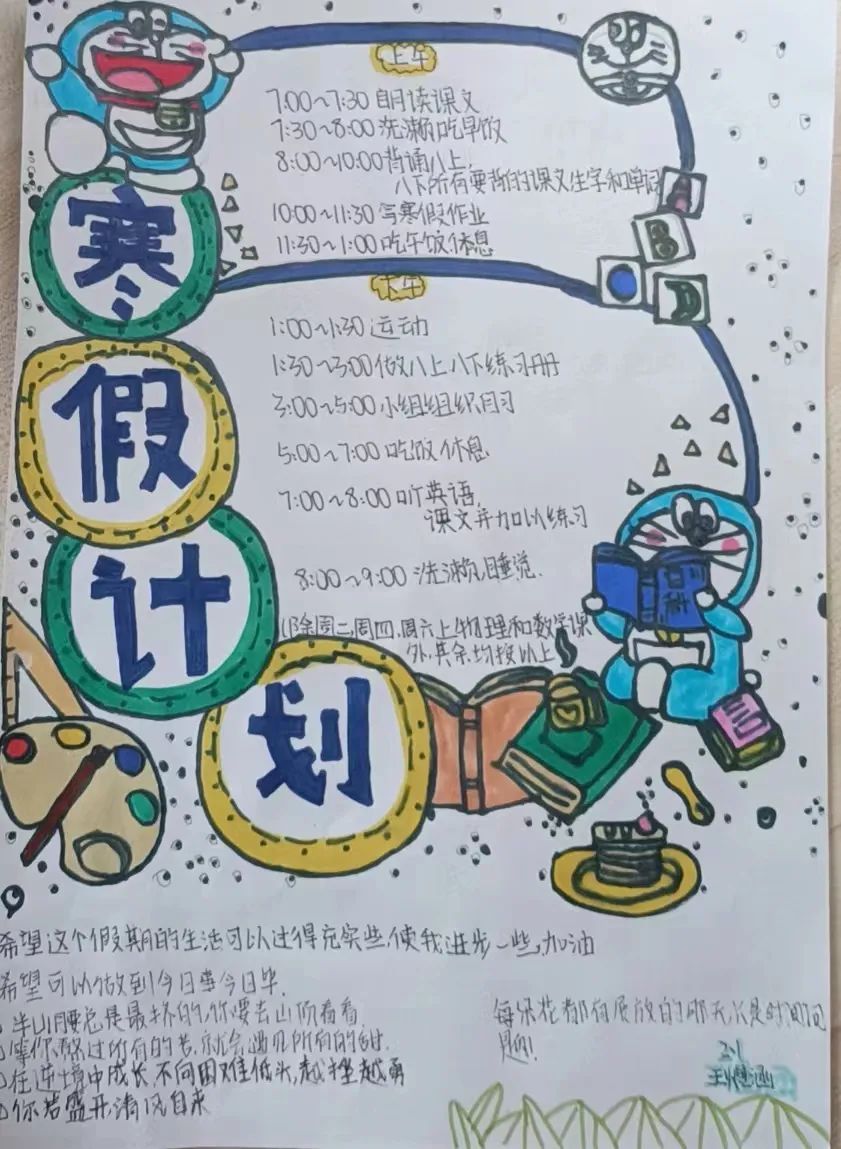 寒假计划
上午
7:00~7:30 朗读课文
7:30~8:00 洗漱吃早饭
8:00~10:00 背诵八上,
八下所有要背的课文生字和单词
10:00~11:30 写寒假作业
11:30~1:00 吃午饭休息
下午
1:00~1:30 运动
1:30~3:00 做八上八下练习册
3:00~5:00 小组组织自习
5:00~7:00 吃饭休息
7:00~8:00 听英语,
课文并加以练习
8:00~9:00 洗漱,睡觉.
(除周二,周四,周六上物理和数学课
外,其余均按以上)
希望这个假期的生活可以过得充实些,使我进步一些,加油
希望可以做到今日事今日毕.
半山腰总是最挤的,你要去山顶看看.
等你熬过所有的苦,就会遇见所有的甜.
在逆境中成长,不向困难低头,越挫越勇
你若盛开,清风自来
每朵花都有居放的那天,只是时间问
题!
2.1
王慧涵